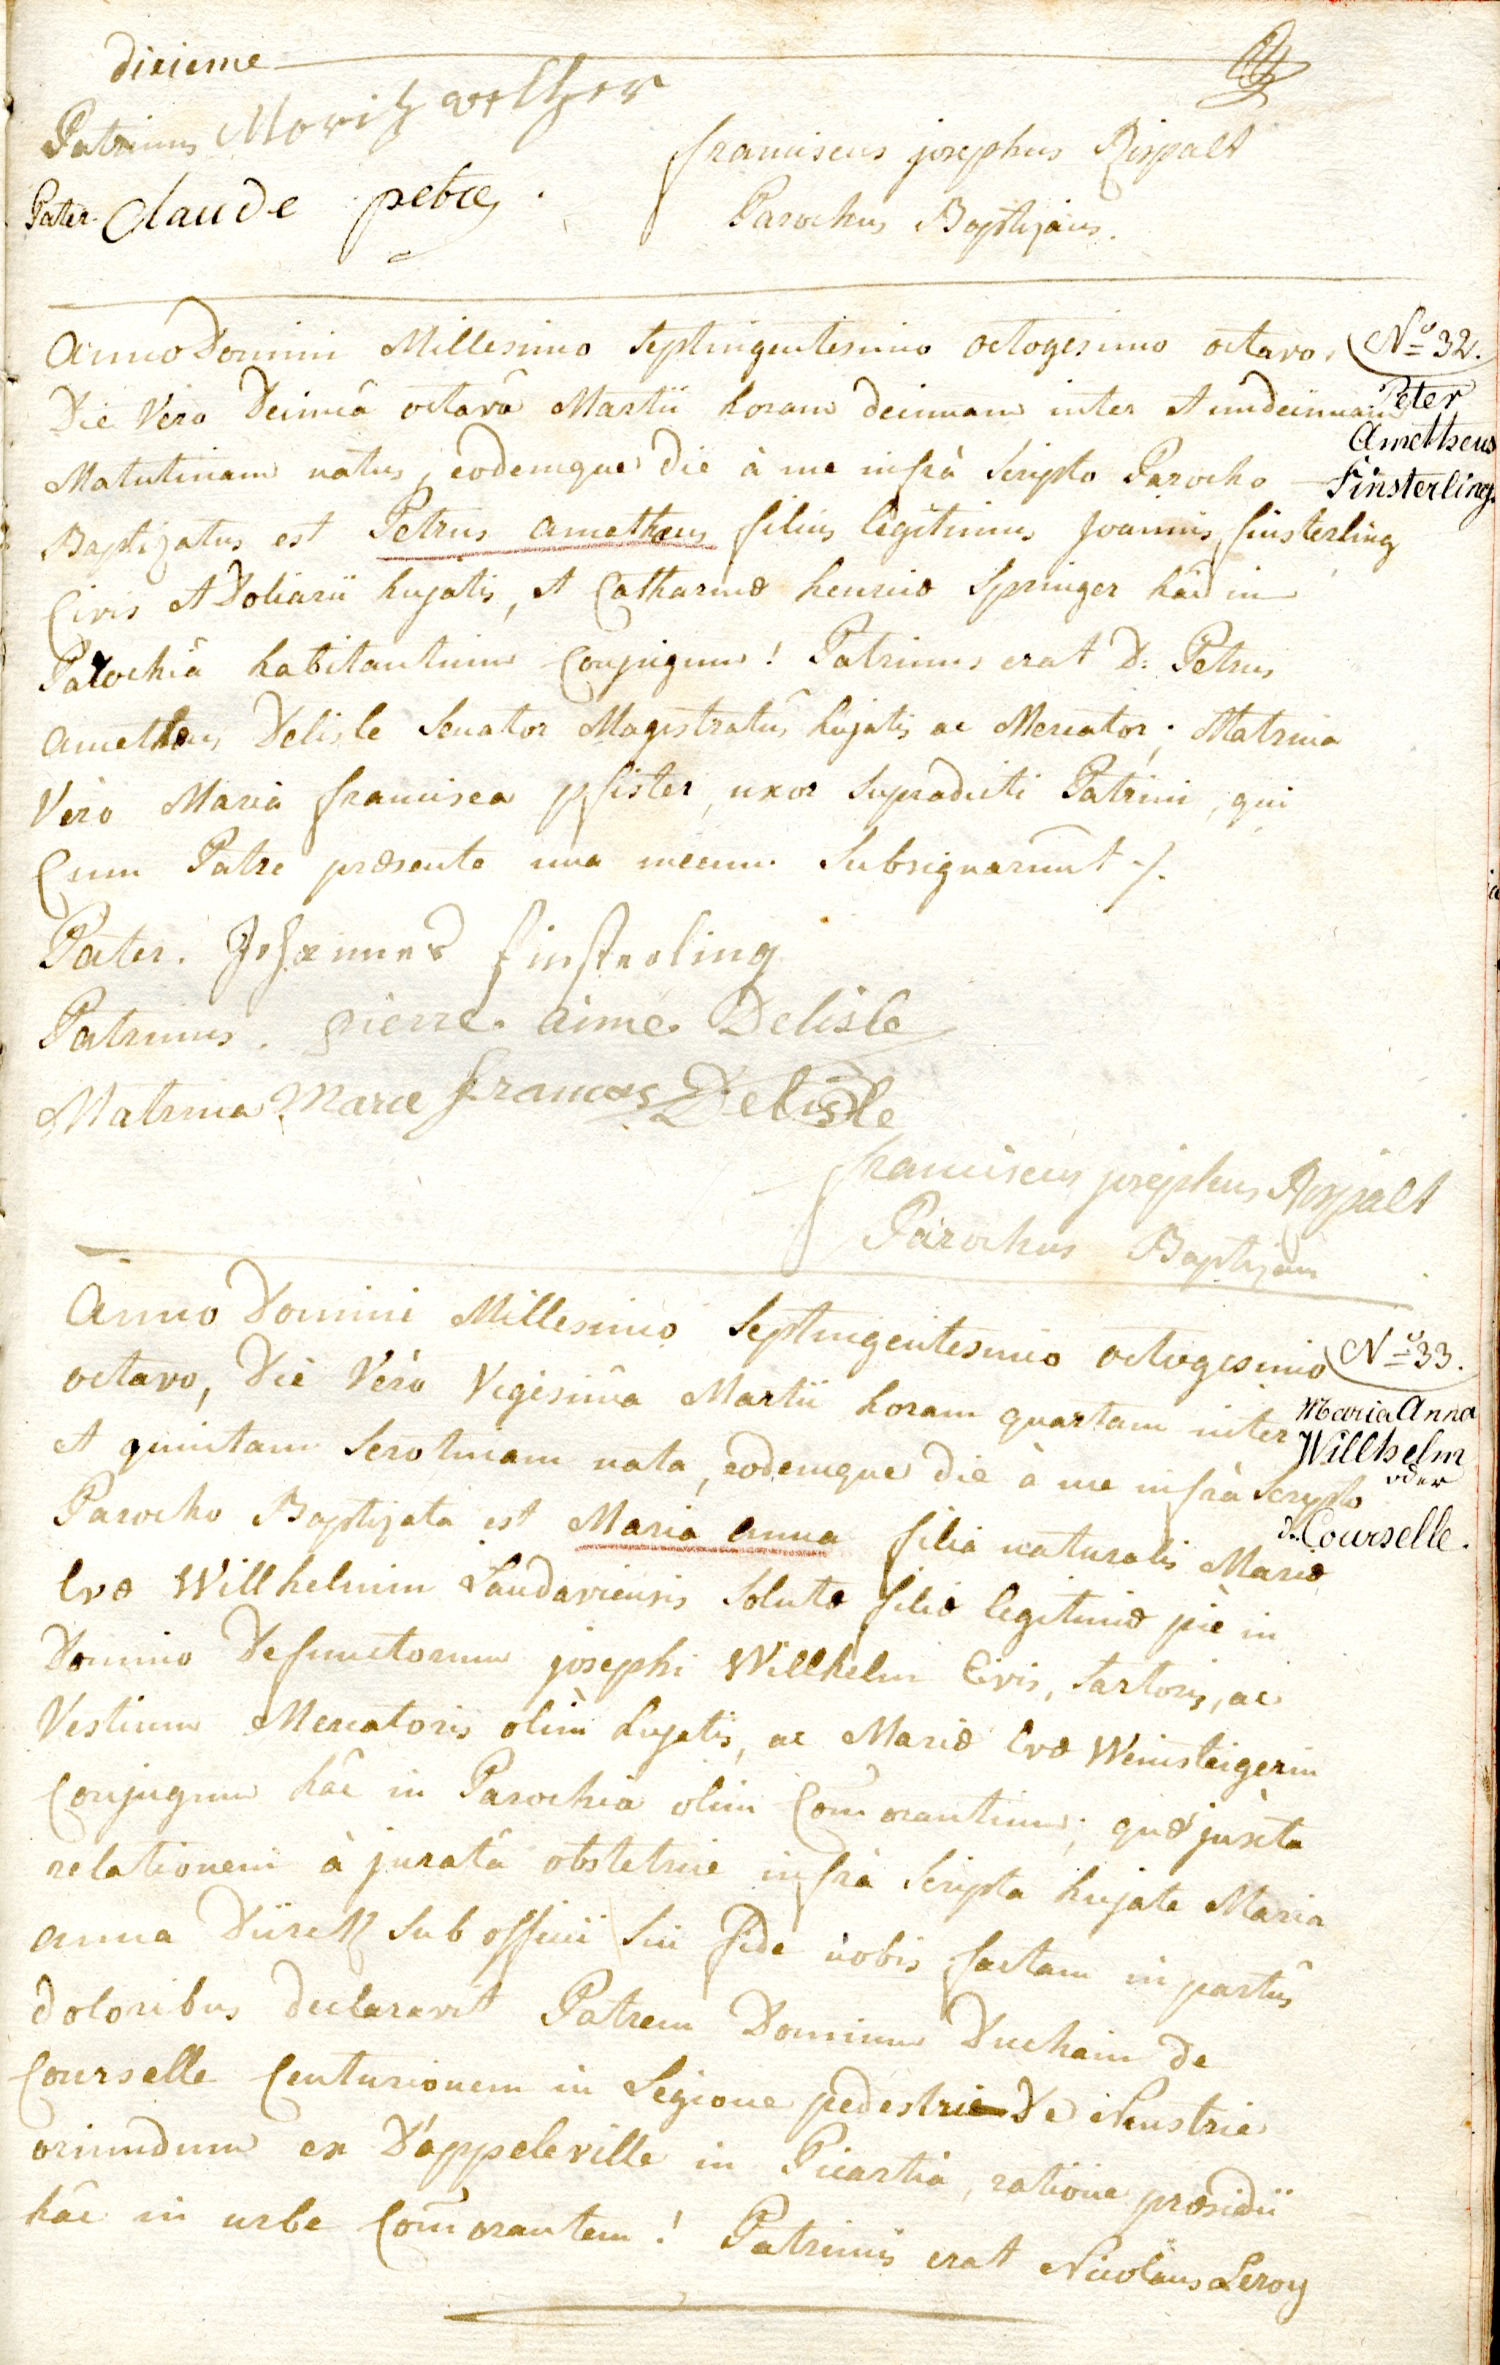 dixieme
Patrinus Moritz Volker
franciscus josephus Rispalt
Pater Claude petre.
Parochus Baptizans.
Anno Domini Millesimo Septingentesimo octogesimo octavo, Nº 32.
Die Vero Decimâ octavâ Martii horam decimam inter et undecimam Peter
Amettheus
Matutinam natus, eodemque die à me infrà Scripto Parocho Finsterling
Baptizatus est Petrus amethæus filius legitimus Joannis finsterling
Civis et Doliarii hujatis, et Catharinæ henricæ Springer hâc in
Parochiâ habitantium Conjugum! Patrinus erat D: Petrus
amethæus Delisle Senator Magistratûs hujatis ac Mercator; Matrina
Verò Maria francisca pfister, uxor Supradicti Patrini, qui
Cum Patre præsente una mecum Subsignarunt ./.
Pater. Johannes finsterling
Patrinus. pierre. aimé. Delisle
Matrina Marie francoes Delisle
franciscus josephus Rispalt
Parochus Baptizans
Anno Domini Millesimo Septingentesimo octogesimo Nº 33.
octavo, Die Verò Vigesimâ Martii horam quartam inter Maria Anna
Willhelm
et quintam Serotinam nata, eodemque die à me infrà Scripto oder
Parocho Baptizata est Maria anna filia naturalis Mariæ d. Courselle.
Evæ Willhelmin Landaviensis Solutæ filiæ legitimæ piè in
Domino Defunctorum josephi Willhelm Civis, Sartoris, ac
Vestium Mercatoris olim hujatis, ac Mariæ Evæ Weinsteigerin
Conjugum hâc in Parochia olim Com̄orantium; quæ juxta
relationem à juratâ obstetrice infrà Scripta hujate Maria
anna Dürck Sub officii Sui fide nobis factam in partûs
doloribus declaravit Patrem Dominum Duchain de
Courselle Centurionem in Legione pedestri De Neustrie
oriundum ex D'appeleville in Picartiâ, ratione præsidii
hâc in urbe Com̄orantem! Patrinus erat Nicolaus Leroy